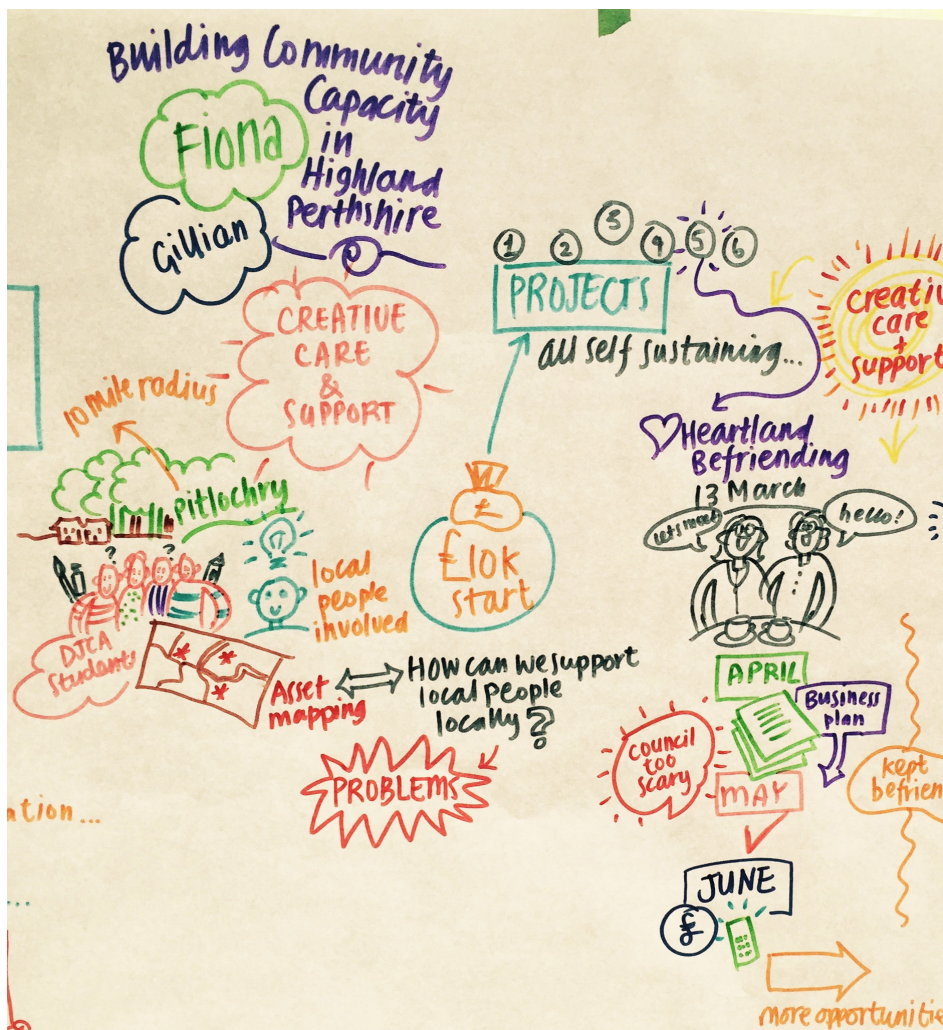 Building Community
Capacity
in
Highland
Perthshire
Fiona
Gillian
CREATIVE
CARE
&
SUPPORT
10 mile radius
Pitlochry
? ?
DJCA
Students
local
people
involved
Asset
mapping
HOW can we support
local people
locally?
PROBLEMS
£
£10K
start
1 2 3 4 5 6
PROJECTS
all self sustaining...
creativ
care
+
support
Heartland
Befriending
13 March
let's meet
hello!
APRIL
Business
plan
council
too
scary
MAY
kept
befrien
JUNE
£
more opportunitie
ation...
...